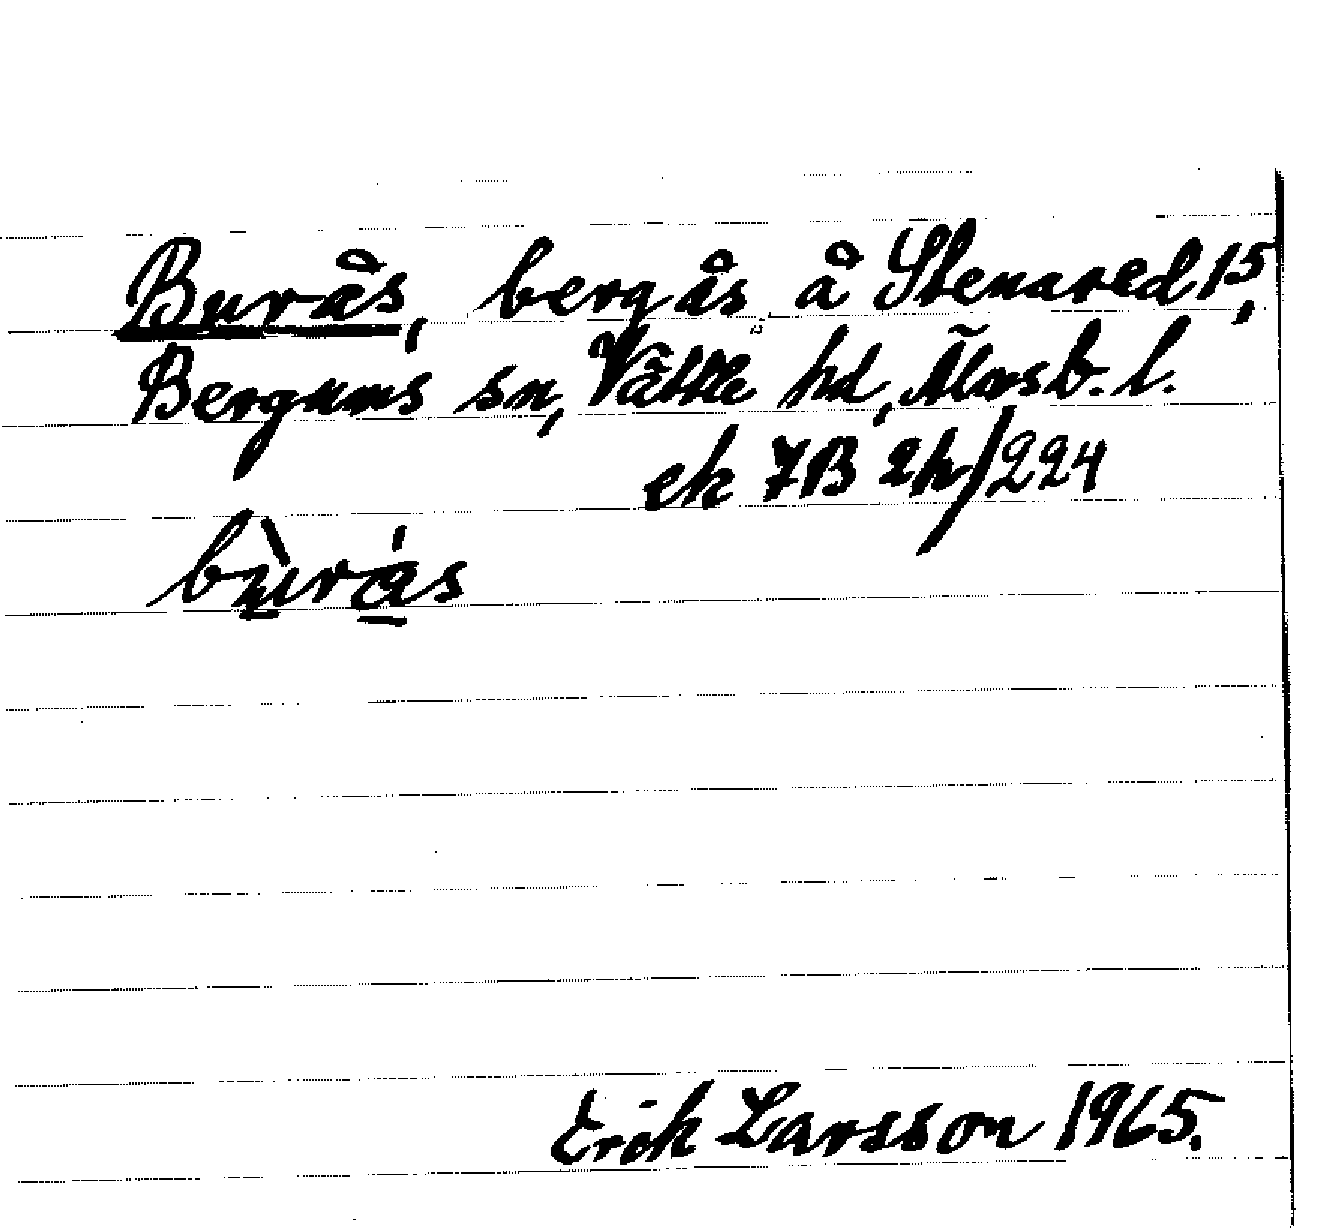 Burås, bergås å Stenared 15,
Bergums sn, Vättle hd, Älvsb. l.
ek 7B 2h/224
bùrás
Erik Larsson 1965.